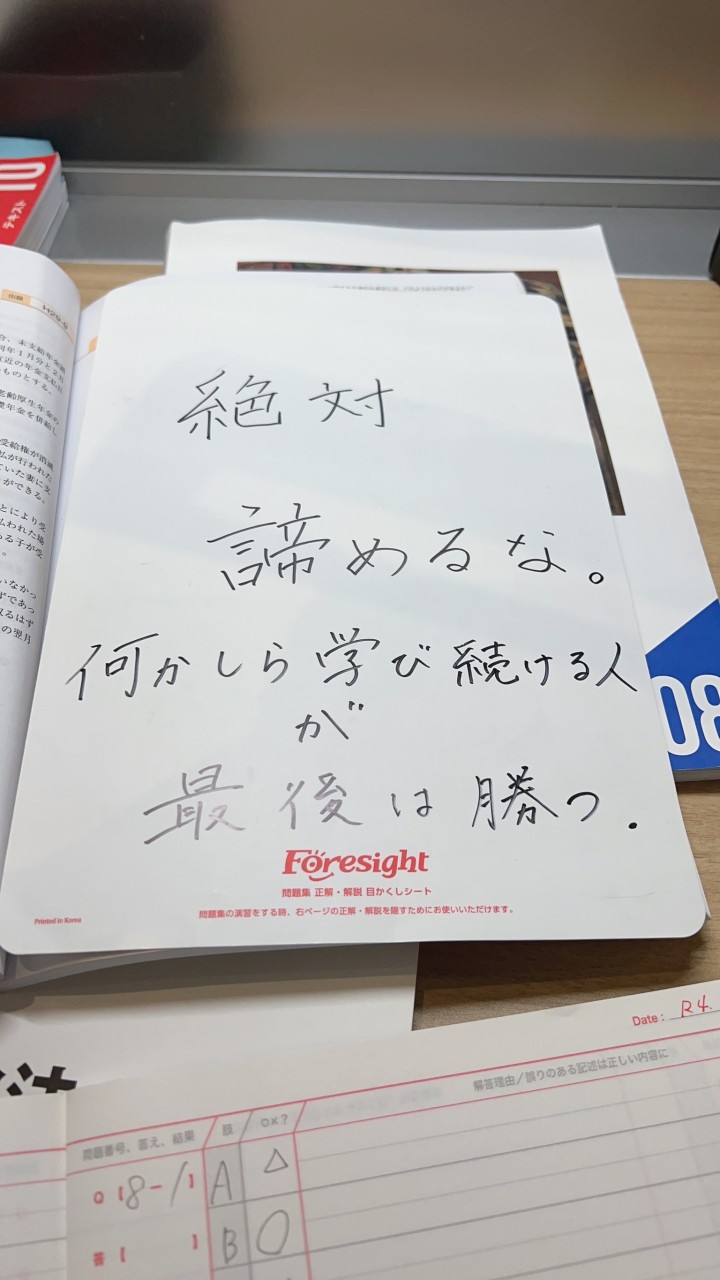 01
テキスト
出題
H29-9
絶対
諦めるな。
何かしら学び続ける人
が
最後は勝つ.
Foresight
問題集 正解・解説 目かくしシート
問題集の演習をする時、右ページの正解・解説を隠すためにお使いいただけます。
Printed in Korea
08
Date : R4.
解答理由/誤りのある記述は正しい内容に
問題番号、答え、結果
肢
○×?
Q【8-1】
A
△
答【 】
B
○